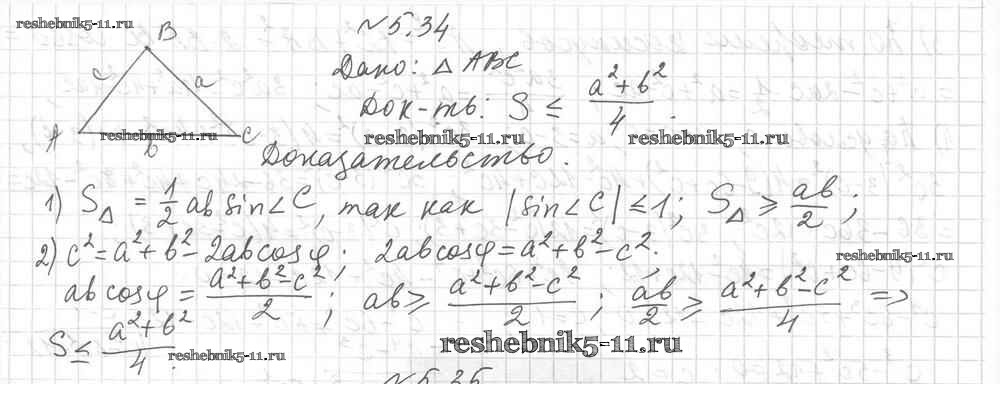 reshebnik5-11.ru
№5.34
B
c
a
Дано: △ ABC
Док-ть: S ≤ (a² + b²)/4.
A
reshebnik5-11.ru
b
C
reshebnik5-11.ru
reshebnik5-11.ru
Доказательство.
1) S△ = 1/2 ab sin∠C, так как |sin∠C| ≤ 1; S△ ≥ ab/2;
2) c² = a² + b² - 2abcosφ; 2abcosφ = a² + b² - c²;
reshebnik5-11.ru
abcosφ = (a² + b² - c²)/2; ab ≥ (a² + b² - c²)/2; ab/2 ≥ (a² + b² - c²)/4 =>
S ≤ (a² + b²)/4.
reshebnik5-11.ru
reshebnik5-11.ru
№5.35